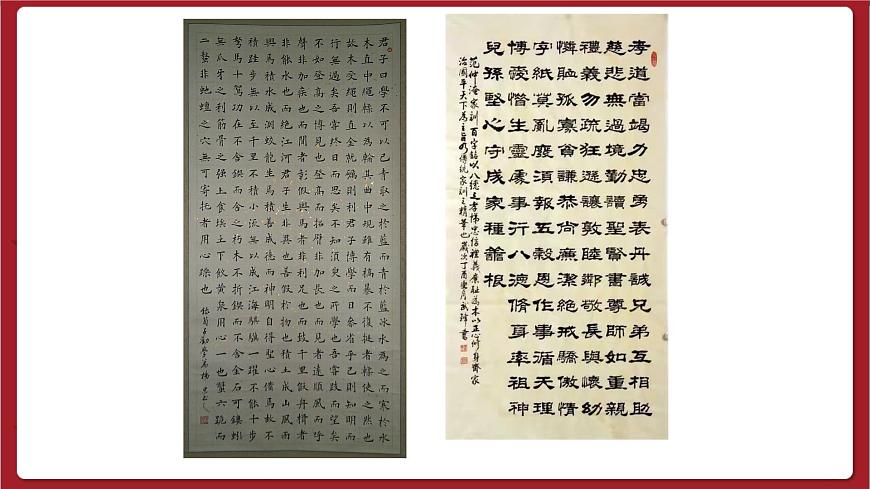 君子曰學不可以已青取之於藍而青於藍冰水為之而寒於水
木直中繩輮以為輪其曲中規雖有槁暴不復挺者輮使之然也
故木受繩則直金就礪則利君子博學而日參省乎己則知明而
行無過矣吾嘗終日而思矣不如須臾之所學也吾嘗跂而望矣
不如登高之博見也登高而招臂非加長也而見者遠順風而呼
聲非加疾也而聞者彰假輿馬者非利足也而致千里假舟楫者
非能水也而絕江河君子生非異也善假於物也積土成山風雨
興焉積水成淵蛟龍生焉積善成德而神明自得聖心備焉故不
積跬步無以至千里不積小流無以成江海騏驥一躍不能十步
駑馬十駕功在不舍鍥而舍之朽木不折鍥而不舍金石可鏤蚓
無爪牙之利筋骨之強上食埃土下飲黃泉用心一也蟹六跪而
二螯非蛇蟺之穴無可寄托者用心躁也
錄荀子勸學篇
孝道當竭力忠勇表丹誠兄弟互相助
慈悲無過境勤讀聖賢書尊師如重親
禮義勿疏狂遜讓敦睦鄰敬長與懷幼
憐恤孤寡貧謙恭尚廉潔絕戒驕傲情
字紙莫亂廢須報五穀恩作事循天理
博愛惜生靈處事行八德脩身率祖神
兒孫堅心守成家種善根
范仲淹家訓百字銘以八德之孝悌忠信禮義廉恥為本以正心修身齊家
治國平天下為主旨乃傳統家訓之精華也歲次丁酉